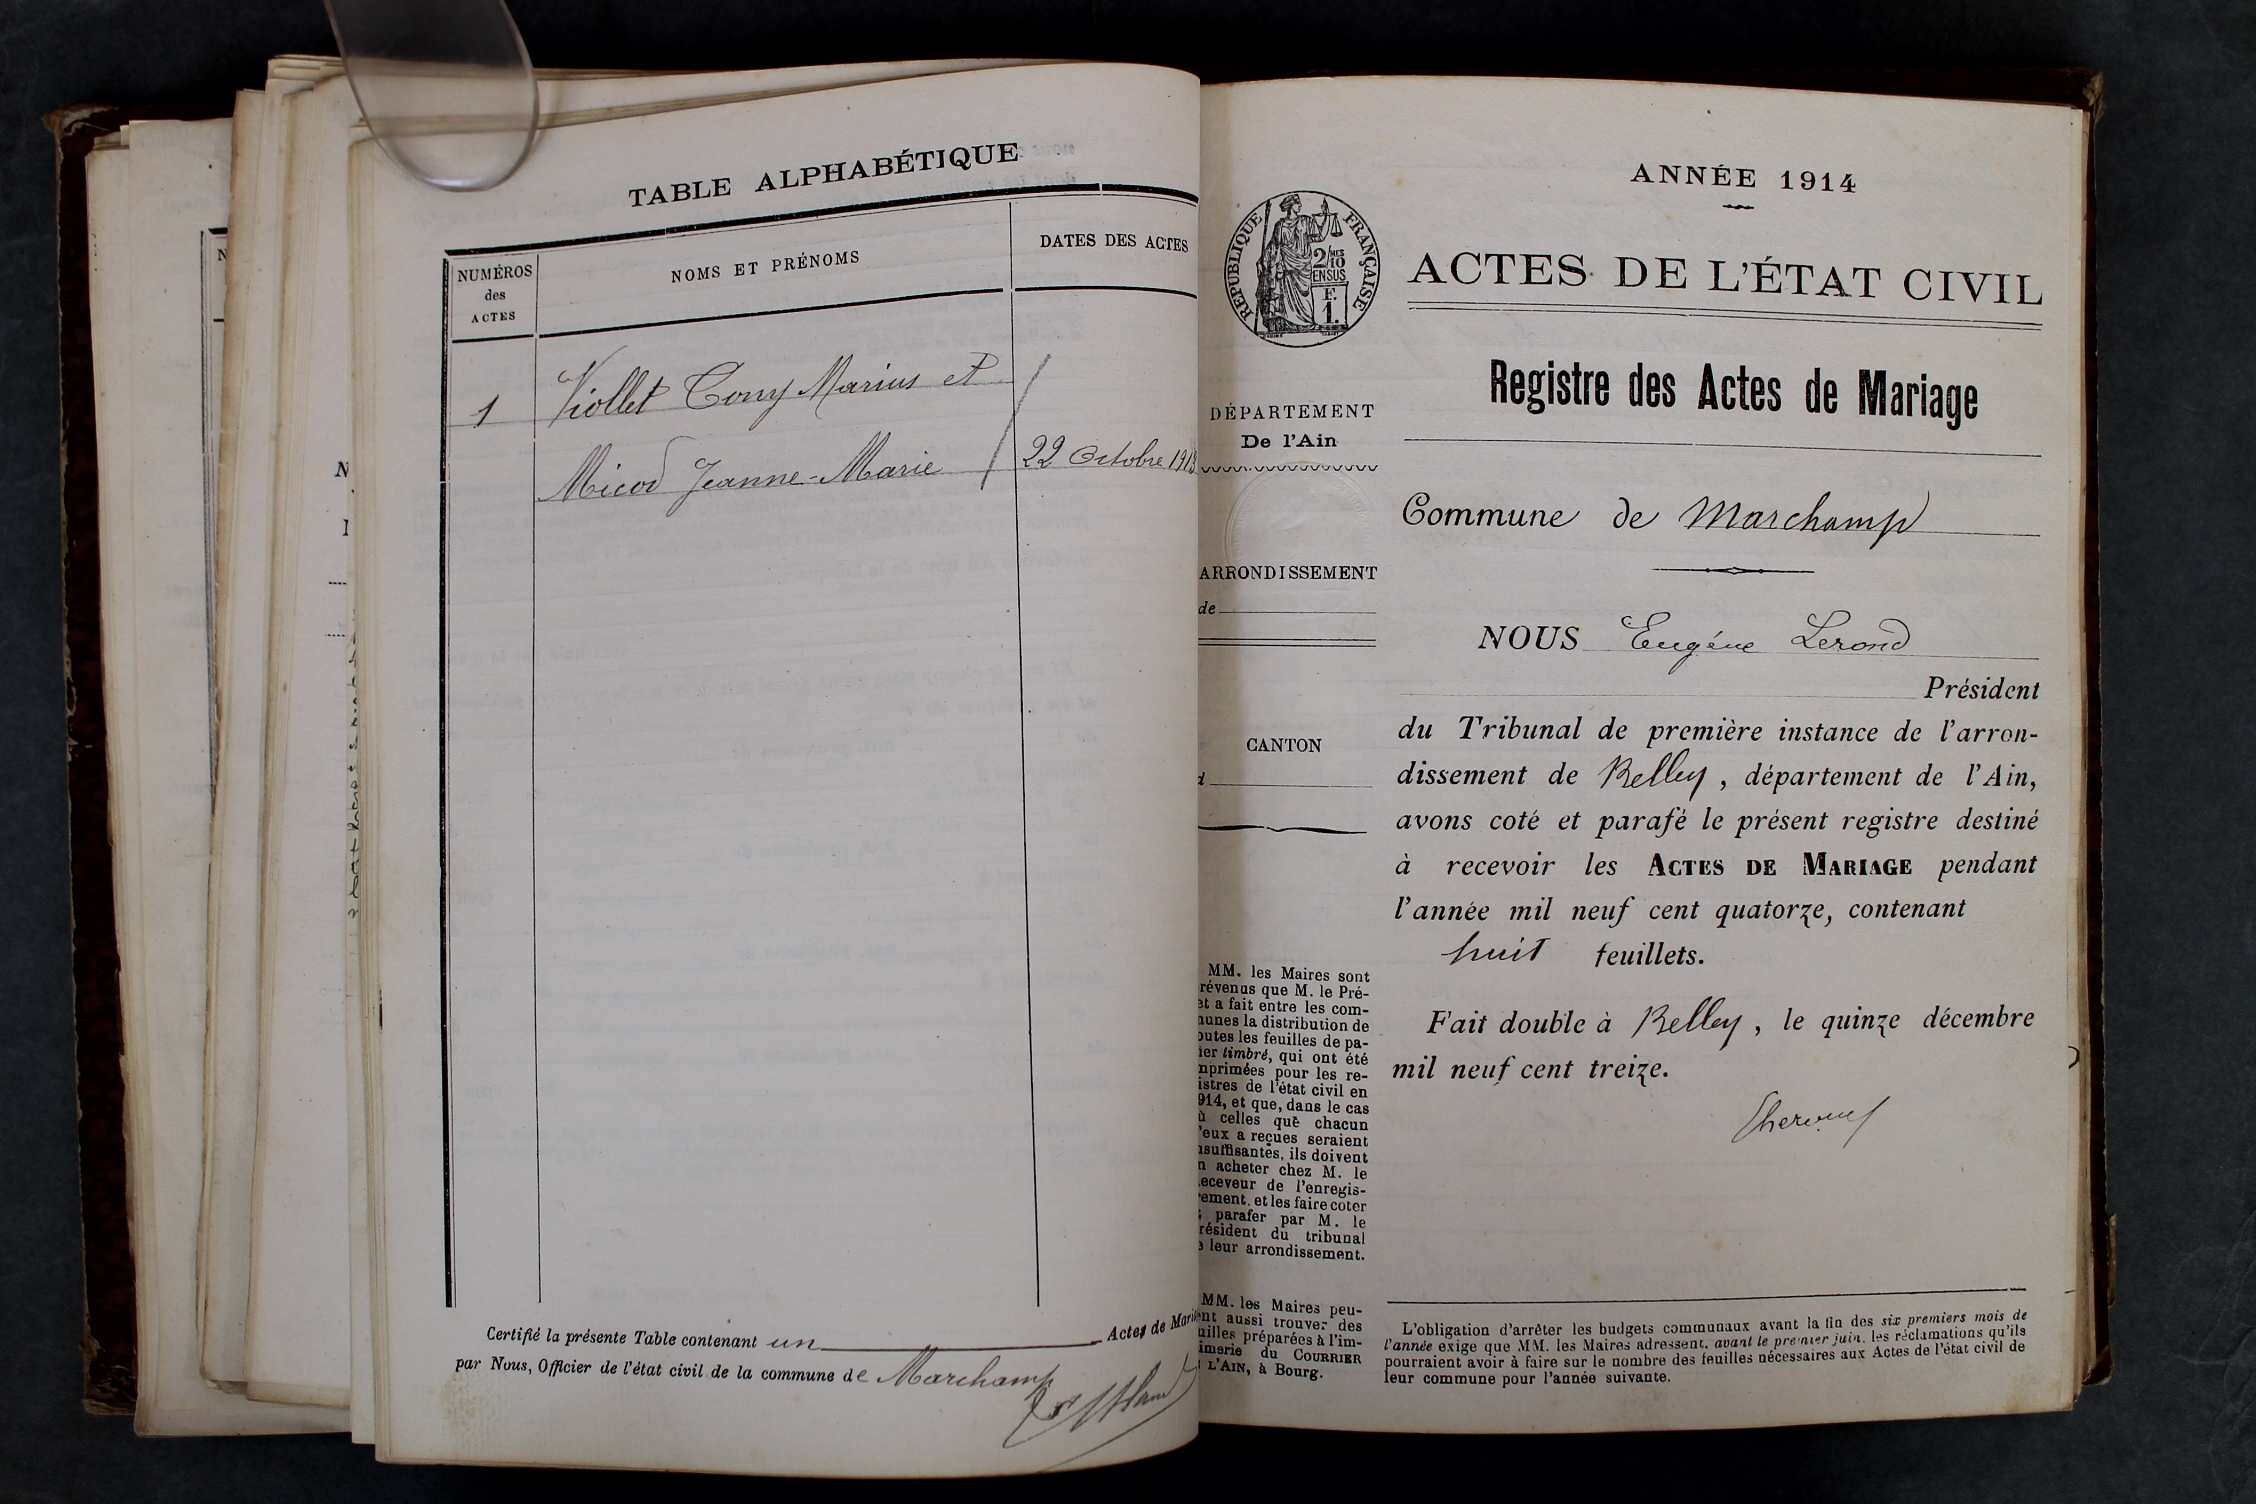 TABLE ALPHABÉTIQUE
NUMÉROS
des
ACTES
NOMS ET PRÉNOMS
DATES DES ACTES
1
Viollet Tony Marius et
Micod Jeanne-Marie
22 Octobre 1913
Certifié la présente Table contenant un Actes de Mari
par Nous, Officier de l'état civil de la commune de Marchamp
RÉPUBLIQUE FRANÇAISE
2/10MES
EN SUS
F.
1.
DÉPARTEMENT
De l'Ain
ARRONDISSEMENT
de
CANTON
d
MM. les Maires sont
révenus que M. le Pré-
et a fait entre les com-
munes la distribution de
outes les feuilles de pa-
ier timbré, qui ont été
mprimées pour les re-
istres de l'état civil en
914, et que, dans le cas
ù celles que chacun
'eux a reçues seraient
nsuffisantes, ils doivent
n acheter chez M. le
eceveur de l'enregis-
rement, et les faire coter
t parafer par M. le
résident du tribunal
e leur arrondissement.
MM. les Maires peu-
ent aussi trouver des
uilles préparées à l'im-
imerie du COURRIER
L'AIN, à Bourg.
ANNÉE 1914
ACTES DE L'ÉTAT CIVIL
Registre des Actes de Mariage
Commune de Marchamp
NOUS Eugéne Lerond
Président
du Tribunal de première instance de l'arron-
dissement de Belley, département de l'Ain,
avons coté et parafé le présent registre destiné
à recevoir les ACTES DE MARIAGE pendant
l'année mil neuf cent quatorze, contenant
huit feuillets.
Fait double à Belley, le quinze décembre
mil neuf cent treize.
L'obligation d'arrêter les budgets communaux avant la fin des six premiers mois de
l'année exige que MM. les Maires adressent, avant le premier juin, les réclamations qu'ils
pourraient avoir à faire sur le nombre des feuilles nécessaires aux Actes de l'état civil de
leur commune pour l'année suivante.